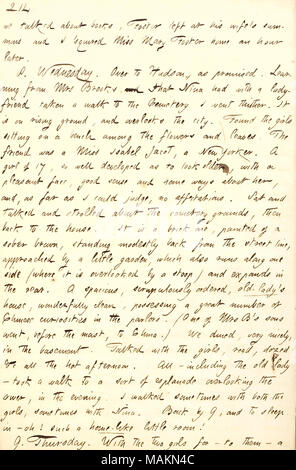 214
we talked about books, Foster left at his wife's summons and I squired Miss Mary Foster home an hour
later.
8. Wednesday. Over to Hudson, as promised. Learning from Mrs Brooks that Nina had with a lady-
friend taken a walk to the Cemetery I went thither. It
is on rising ground, and overlooks the city. Found the girls
sitting on a bench among the flowers and leaves. The
friend was a Miss Isabel Jacot, a New Yorker. A
girl of 17, so well developed as to look older, with a
pleasant face, good sense and some ways about her,
and, as far as I could judge, no affectations. Sat and
talked and strolled about the cemetery grounds, then
back to the house. It is a brick one, painted of a
sober brown, standing modestly back from the street line,
approached by a little garden, which also runs along one
side (where it is overlooked by a stoop) and expands in
the rear. A spacious, scrupulously ordered, old lady's
house, wonderfully clean, possessing a great number of
Chinese curiosities in the parlors. (One of Mrs B's sons
went, before the mast, to China.) We dined, very nicely,
in the basement. Talked with the girls, read, dozed
all the hot afternoon. All - including the old lady
- took a walk to a sort of esplanade overlooking the
river, in the evening. I walked sometimes with both the
girls, sometimes with Nina. Back by 9, and to sleep
in - oh! such a home-like little room!
9. Thursday. With the two girls for - to them - a
alamy
Image ID: MAKN4C
www.alamy.com